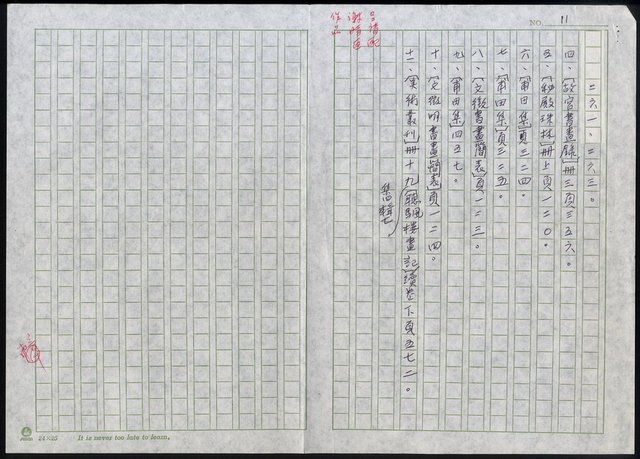 NO. 11
二六一、二六三。
四、〔故宮書畫錄〕冊三頁三五六。
五、〔秘殿珠林〕冊上頁一二〇。
六、〔甫田集〕頁三二四。
七、〔甫田集〕頁三二五。
八、〔文徵明書畫簡表〕頁一二三。
九、〔甫田集〕四五七。
十、〔文徵明書畫簡表〕頁一二四。
十一、〔美術叢刊〕冊十九〔聽颿樓書畫記〕續卷下頁五七二。
集四輯七
作品
24×25
It is never too late to learn.